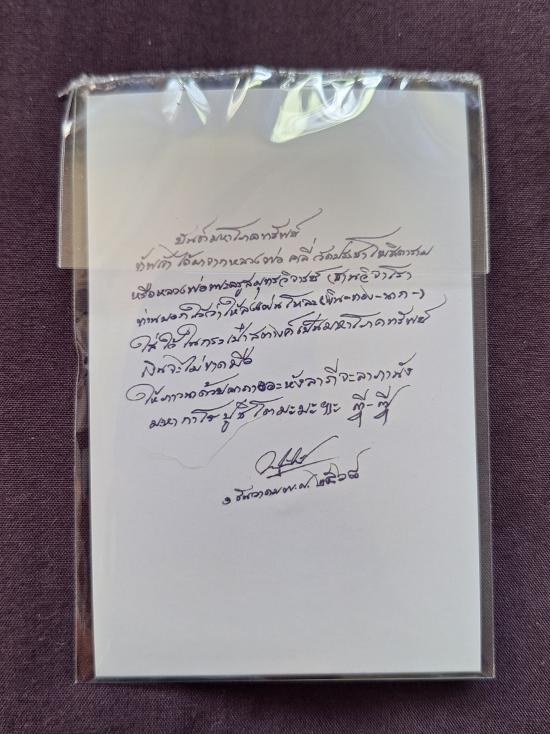 ยันต์มหาโภคทรัพย์
ข้าพเจ้าได้มาจากหลวงพ่อ คลี่ วัดประชาโฆสิตาราม
หรือหลวงพ่อพระครูสมุทรวิจารย์ (ชานวิจาโร)
ท่านบอกไว้ว่าให้ลงแผ่นโลหะ(เงิน-ทอง-นาก-)
ใส่ไว้ในกระเป๋าสตางค์เป็นมหาโภคทรัพย์
เงินจะไม่ขาดมือ
ให้ภาวนาด้วยคาถา หังลาภี จะลาภานัง
มหา กาโย ปู ชิ โต มะมะ
๑ ธันวาคม พ.ศ. ๒๕๖๘